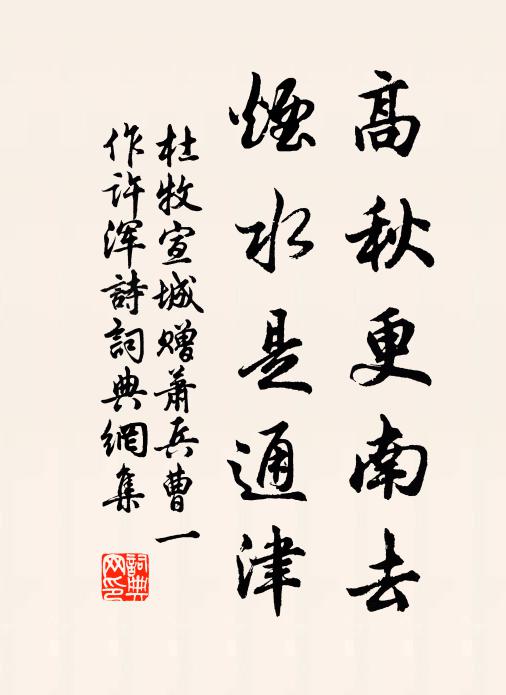 高秋更南去
煙水是通津
杜牧宣城赠萧兵曹一
作许浑詩詞典網集
詞典
网印